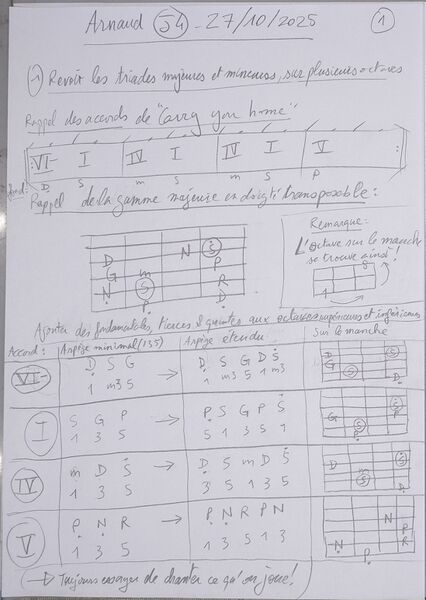 Arnaud S4 - 27/10/2025
1
1) Revoir les triades majeures et mineures, sur plusieurs octaves
Rappel des accords de "Carry you home"
VI- I IV I IV I V
D S m S m S P
Rappel de la gamme majeure en doigté transposable :
Remarque :
L'octave sur le manche se trouve ainsi !
1 8
D N S
G m P
N S R
P D
Ajouter des fondamentales, tierces & quintes aux octaves supérieures et inférieures
Accord : Arpège minimal (135) Arpège étendu Sur le manche
VI- D S G → D S G D S
1 m3 5 1 m3 5 1 m3
I S G P → P S G P S
1 3 5 5 1 3 5 1
IV m D S → D S m D S
1 3 5 3 5 1 3 5
V P N R → P N R P N
1 3 5 1 3 5 1 3
→ Toujours essayer de chanter ce qu'on joue !